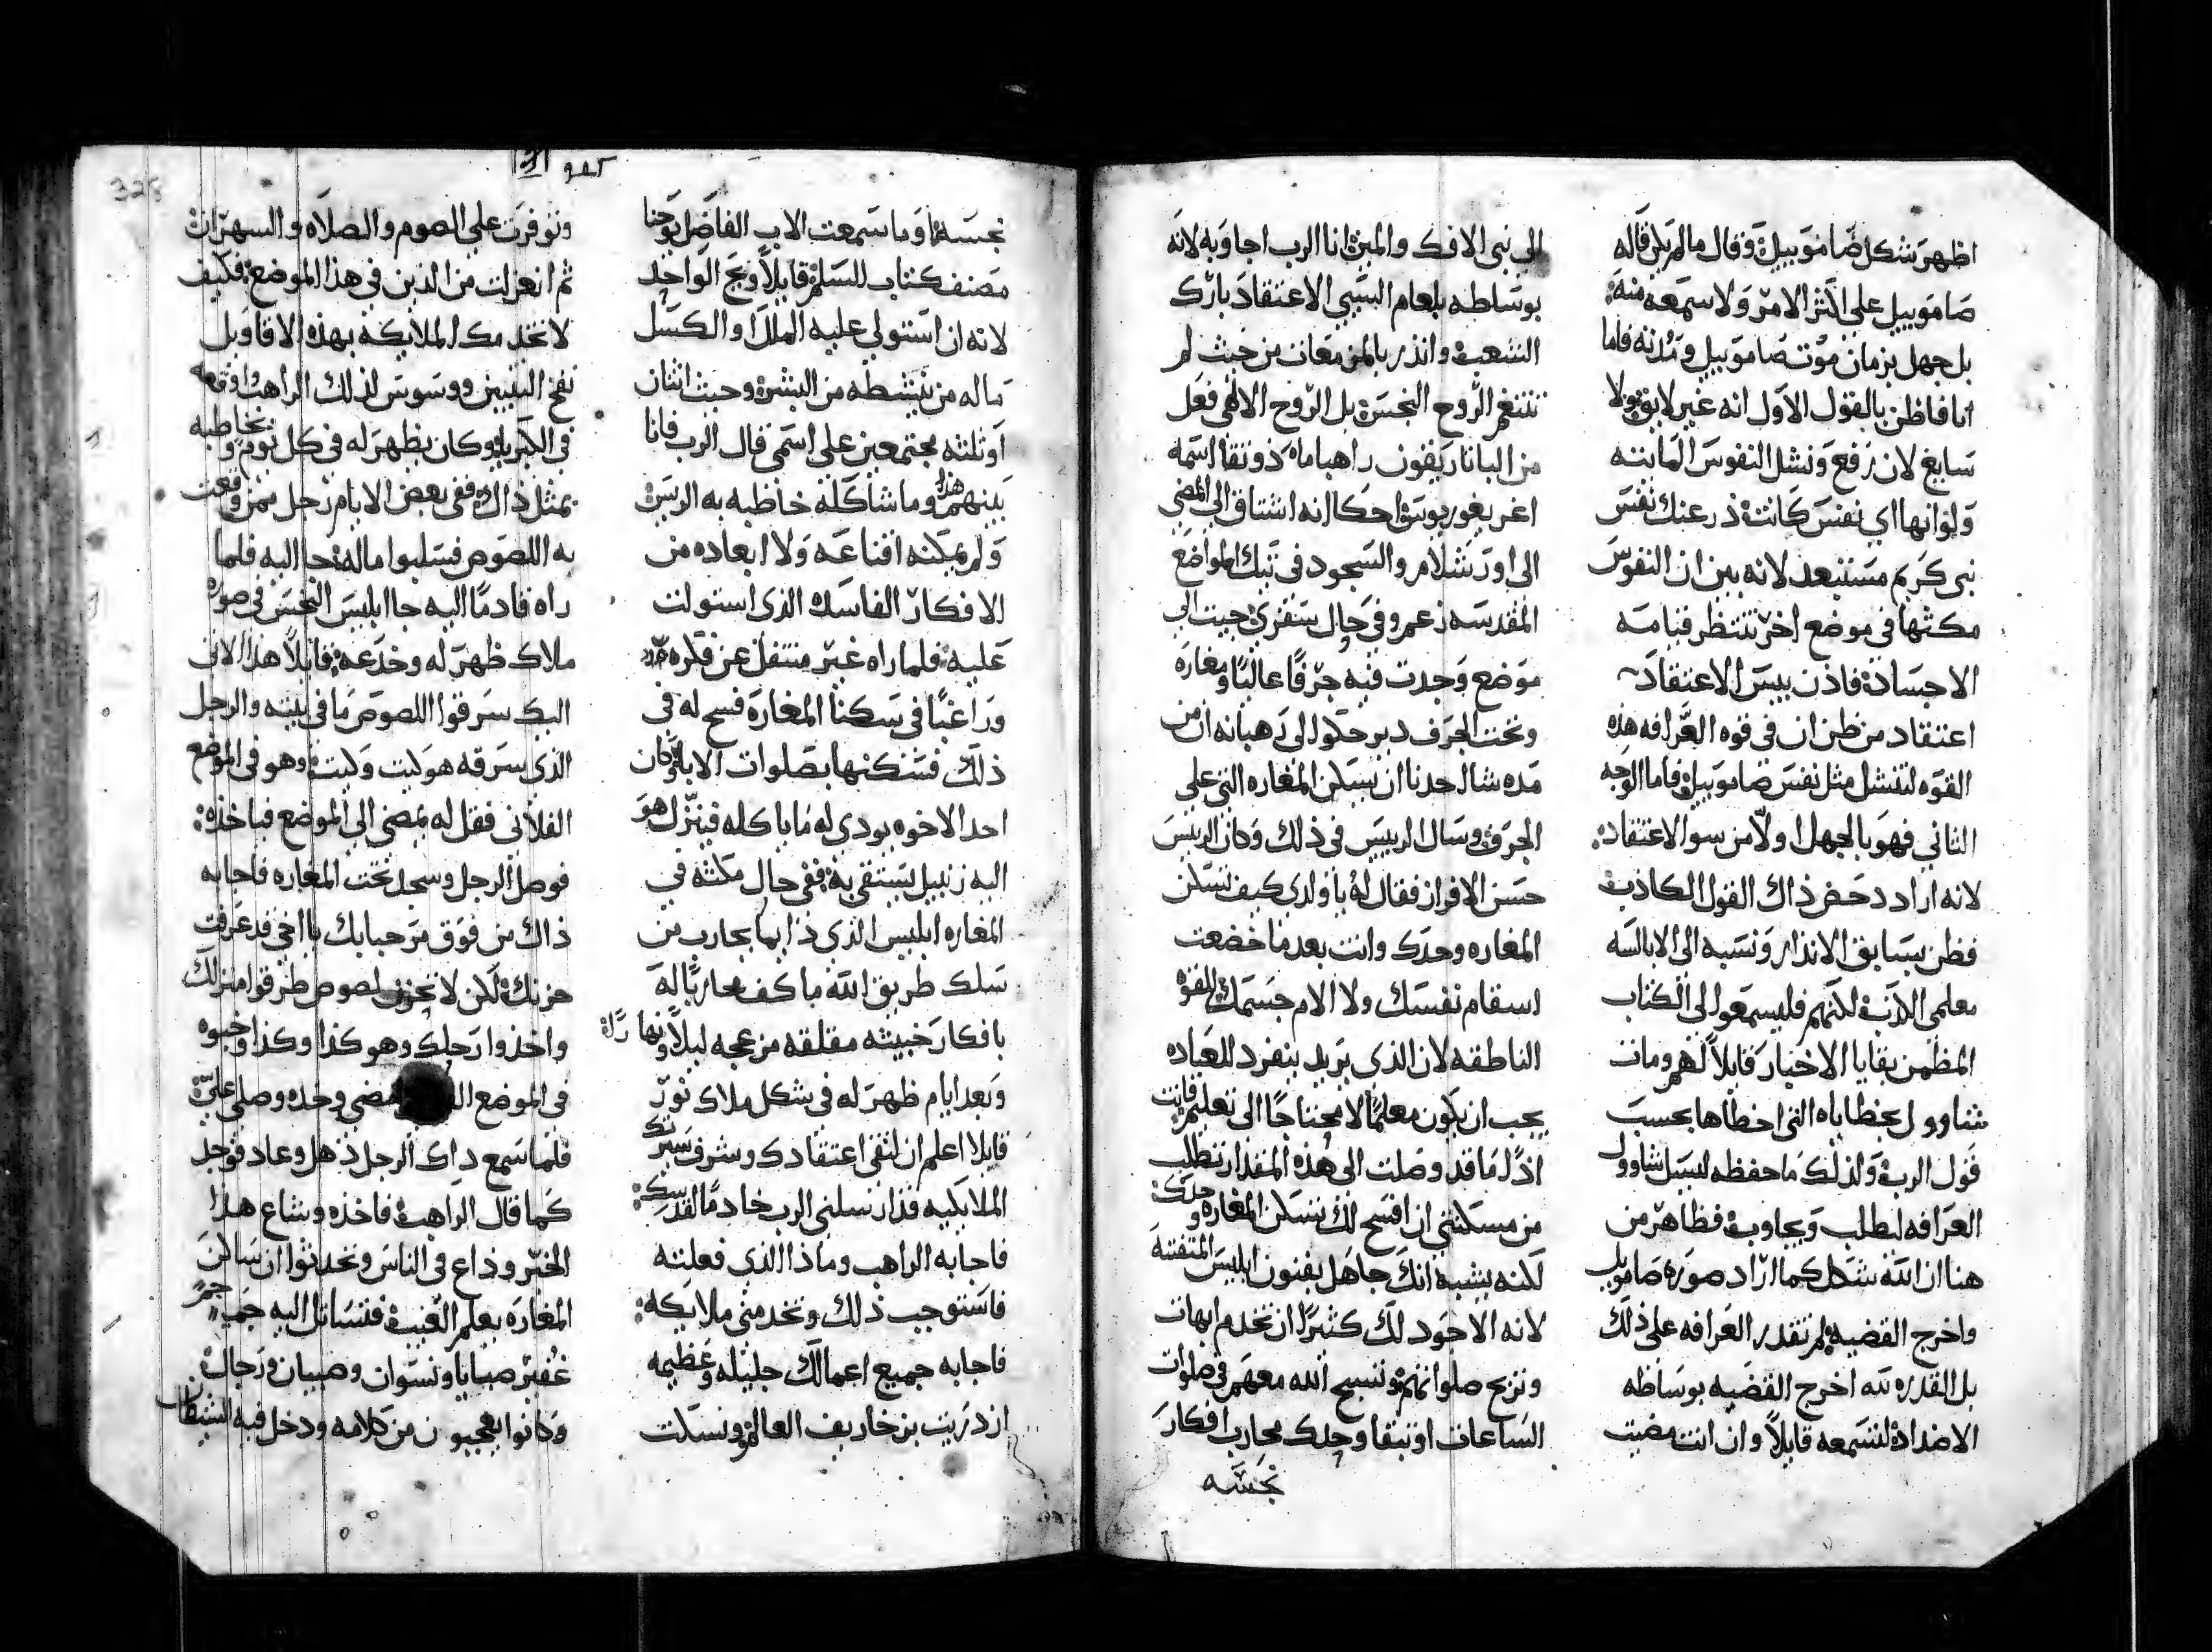 اظهر شكل ضاموييل وقال مالم يكن قاله
صاموييل على اكثر الامر ولا سمعه منه:
بل جهل بزمان موت صاموييل ومدته فاما
انا فاظن بالقول الاول انه غير لايق ولا
سايغ لان رفع ونشل النفوس المايته
ولو انها اي نفس كانت ذر عنك نفس
نبي كريم مستبعد لانه بين ان النفوس
مكثها في موضع اخر تنتظر قيامه
الاجساد فاذن بيس الاعتقاد
اعتقاد من ظن ان في قوه العرافه هذه
القوه لتنشل مثل نفس صاموييل فاما الوجه
الثاني فهو بالجهل اولا من سو الاعتقاد:
لانه اراد دحض ذاك القول الكاذب
فظن بسابق الانذار ونسبه الى الابالسه
معلمي الكذب لكنهم فليسمعوا الى الكتاب
المظمن بقايا الاخبار قايلا لهم ومات
شاوول بخطاياه التي اخطاها بحسب
قول الرب ولذلك ما حفظه ليسل شاوول
العرافه لطلب وبجاوب فظاهر من
هنا ان الله شكل كما اراد صوره صاموييل
واخرج القضيه ولم تقدر العرافه على ذلك
بل القدره لله اخرج القضيه بوساطه
الاضداد لتسمعه قايلا وان انت مضيت
الى نبي الافك والمين انا الرب اجاوبه لانه
بوساطه بلعام السيي الاعتقاد بارك
الشعب وانذر بالمزمعات من حيث لم
تتنغم الروح النجسه بل الروح الالهي فعل
من الباناريفون راهبا ماه ذو نقا اسمه
اغريغوريوس احكا انه اشتاق الى المضي
الى اورشلام والسجود في تيك المواضع
المقدسه زعم وفي حال سفري جيت الى
موضع وجدت فيه جرفا عاليا ومغاره
وتحت الجرف دير حكوا لى رهبانه ان من
مده سال احدنا ان يسكن المغاره التي على
الجرف وسال الرييس في ذلك وكان الرييس
حسن الافراز فقال له يا ولدي كيف تسكن
المغاره وحدك وانت بعد ما خضعت
اسقام نفسك ولا الام جسمك للقوه
الناطقه لان الذي يريد ينفرد للعباده
يجب ان يكون معلما لا محتاجا الى تعليم فانت
اذ لما قد وصلت الى هذه المقدار تطلب
من مسكنتي ان افسح لك تسكن المغاره وحدك
لكنه يشبه انك جاهل بفنون ابليس المتفتنه
لانه الاجود لك كثيرا ان تخدم ابهات
وتربح صلواتهم وتسبح الله معهم في صلوات
الساعات او تبقا وحدك محارب افكار
نجسه
نجسه او ما سمعت الاب الفاضل يوحنا
مصنف كتاب السلم قايلا ويح الواحد
لانه ان استولى عليه الملل او الكسل
ماله من ينشطه من البشر وحيث اثنان
او ثلثه مجتمعين على اسمي قال الرب فانا
بينهم هذا وما شاكله خاطبه به الريس
ولم يمكنه اقناعه ولا ابعاده من
الافكار الفاسده الذي استولت
عليه فلما راه غير منتقل عن فكره
وراغبا في سكنا المغاره فسح له في
ذلك فسكنها بصلوات الابا وكان
احد الاخوه يودي له ما ياكله فينزل هو
اليه زنبيل يستقي به: ففي حال مكثه في
المغاره ابليس الذي دايما يحارب من
سلك طريق الله ما كف محاربا له
بافكار خبيثه مقلقه مزعجه ليلا ونهارا
وبعد ايام ظهر له في شكل ملاك نور
قايلا اعلم ان لنقى اعتقادك وشرف سيرتك
الملايكيه قد ارسلني الرب خادما لقدسك:
فاجابه الراهب وماذا الذي فعلته
فاستوجب ذلك وتخدمني ملايكه:
فاجابه جميع اعمالك جليله وعظيمه
ازدريت بزخاريف العالم ونسكت
وتوفرت على الصوم والصلاه والسهرات
ثم انعزلت من الدير في هذا الموضع: فكيف
لا تخدمك الملايكه بهذه الاقاويل
نفخ التنين ووسوس لذلك الراهب واوقعه
في الكبريا وكان يظهر له في كل يوم ويخاطبه
بمثل ذاك ففي بعض الايام رجل ممن وقعت
به اللصوص فسلبوا ماله جا اليه فلما
راه قادما اليه جا ابليس النجس في صوره
ملاك ظهر له وخدعه: قايلا هذا الاتى
اليك سرقوا اللصوص ما في بيته والرجل
الذي سرقه هو كيت وكيت وهو في الموضع
الفلاني فقل له يمضي الى الموضع فياخذه:
فوصل الرجل وسجد تحت المغاره فاجابه
ذاك من فوق مرحبا بك يا اخي قد عرفت
حزنك ولكن لا تحزن لصوص طرقوا منزلك
واخذوا رحلك وهو كذا وكذا وخبوه
في الموضع امضي وخذه وصلي علي
فلما سمع ذاك الرجل ذهل وعاد فوجد
كما قال الراهب فاخذه وشاع هذا
الخبر وذاع في الناس وتحدثوا ان ساكن
المغاره يعلم الغيب فتسايل اليه جم
غفير صبايا ونسوان وصبيان ورجال
وكانوا يعجبون من كلامه ودخل فيه الشيطان
328